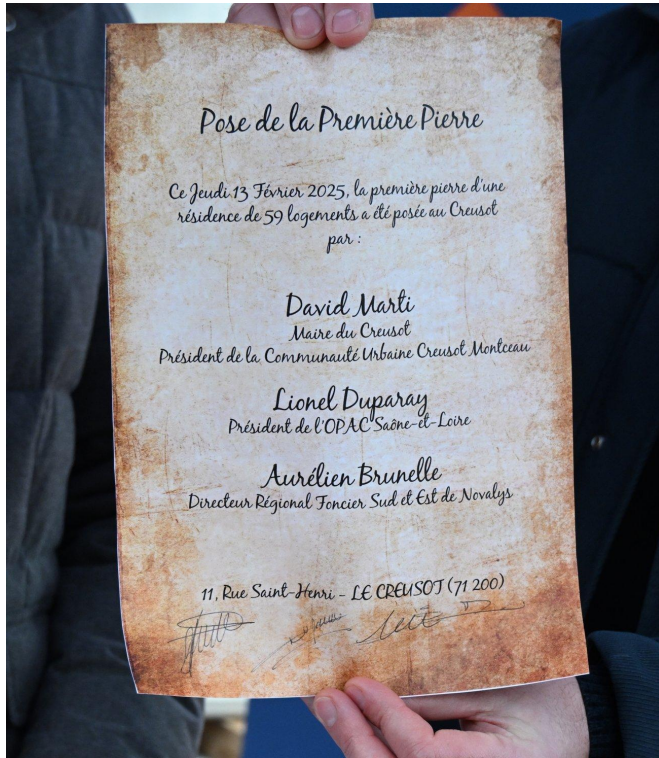 Pose de la Première Pierre
Ce Jeudi 13 Février 2025, la première pierre d'une
résidence de 59 logements a été posée au Creusot
par :
David Marti
Maire du Creusot
Président de la Communauté Urbaine Creusot Montceau
Lionel Duparay
Président de l'OPAC Saône-et-Loire
Aurélien Brunelle
Directeur Régional Foncier Sud et Est de Novalys
11, Rue Saint-Henri - LE CREUSOT (71 200)